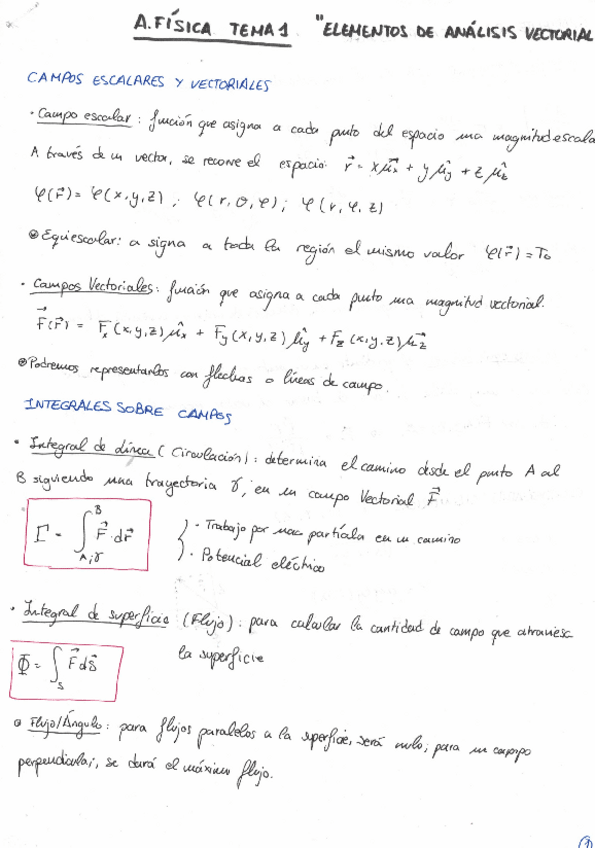 A. FÍSICA TEMA 1 "ELEMENTOS DE ANÁLISIS VECTORIAL
CAMPOS ESCALARES Y VECTORIALES
· Campo escalar: función que asigna a cada punto del espacio una magnitud escala
A través de un vector, se recorre el espacio: r⃗ = x μ⃗x + y μ̂y + z μ̂z
φ(r⃗) = φ(x,y,z) ; φ(r,θ,φ); φ(r,φ,z)
⊙ Equiescalar: asigna a toda la región el mismo valor φ(r⃗) = T₀
· Campos Vectoriales: función que asigna a cada punto una magnitud vectorial.
F⃗(r⃗) = Fx(x,y,z) μ̂x + Fy(x,y,z) μ̂y + Fz(x,y,z) μ⃗z
⊙ Podremos representarlos con flechas o líneas de campo.
INTEGRALES SOBRE CAMPOS
· Integral de línea (Circulación): determina el camino desde el punto A al
B siguiendo una trayectoria γ, en un campo Vectorial F⃗
Γ = ∫_{A,γ}^{B} F⃗·dr⃗
· Trabajo por una partícula en un camino
· Potencial eléctrico
· Integral de superficie (Flujo): para calcular la cantidad de campo que atraviesa
la superficie
Φ = ∫_S F⃗ dS⃗
⊙ Flujo/Ángulo: para flujos paralelos a la superficie, será nulo; para un campo
perpendicular, se dará el máximo flujo.
1